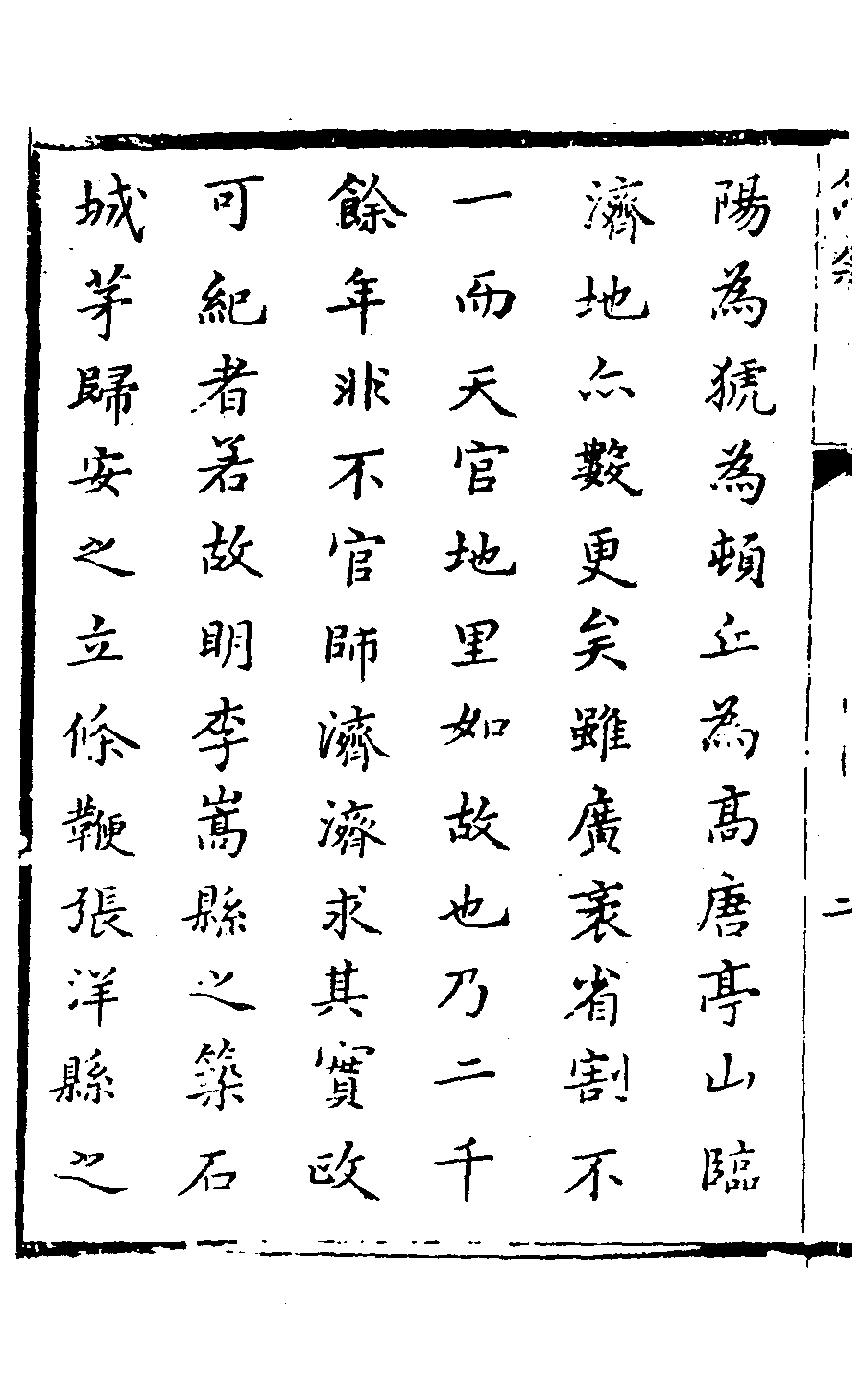 陽為猇為頓丘為高唐亭山臨
濟地亦數更矣雖廣袤省割不
一而天官地里如故也乃二千
餘年非不官師濟濟求其實政
可紀者若故明李嵩縣之築石
城茅歸安之立條鞭張洋縣之
二